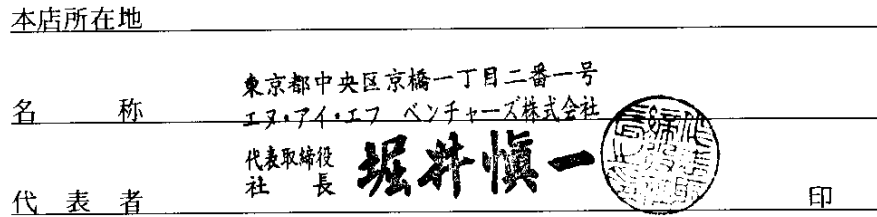 本店所在地
東京都中央区京橋一丁目二番一号
名 称 エヌ・アイ・エフ ベンチャーズ株式会社
代表取締役
社 長 堀井愼一
代 表 者 印